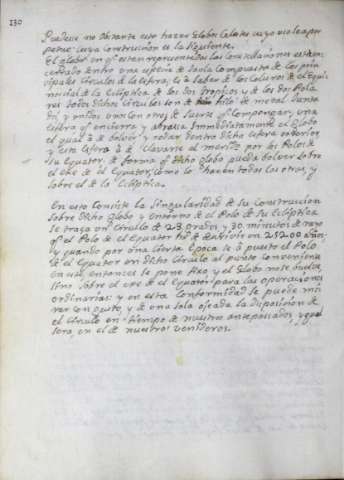 130
Puedese no obstante esto hacer Globos Celestes cuyo uso sea per
petuo: cuya Construccion es la siguiente.
El globo en q.e estan representadas las Constelaciones està en
cerrado dentro una especie de Jaula Compuesta de los prin
cipales Circulos de la Esfera, es à saber de los Coluros de el Equi
noccial de la Ecliptica de los dos Tropicos y de los dos Pola
res todos dichos Circulos son de hilo de metal Junta
dos, y unidos unos con otros de suerte q.e Componga, una
esfera q.e encierra y abraza Immediatamente el Globo
el qual à de bolver y rodar dentro dicha esfera exterior,
y esta Esfera à de Clavarse al meridio por los Polos de
su Equator de forma q.e dicho globo pueda bolver sobre
el exe de el Equator, como lo hacen todos los otros, y
sobre el de la Ecliptica.
En esto Consiste la Singularidad de su Construccion
Sobre dicho Globo y entorno de el Polo de su Ecliptica
se traza un circulo de 23 grados y 30 minutos de rayo
q.e el Polo de el Equator ha de describir en 25200 años,
y quando por una Cierta Epoca se à puesto el Polo
de el Equator en dicho Circulo al punto conveniente
entonces se pone fixo, y el Globo no se buelve,
sino sobre el exe de el Equator para las operaciones
ordinarias: y en esta Conformidad se puede mi
rar con gusto, y de una sola ojeada la disposicion de
el Circulo en tiempo de nuestros antepassados, y qual
sera, en el de nuestros venideros.